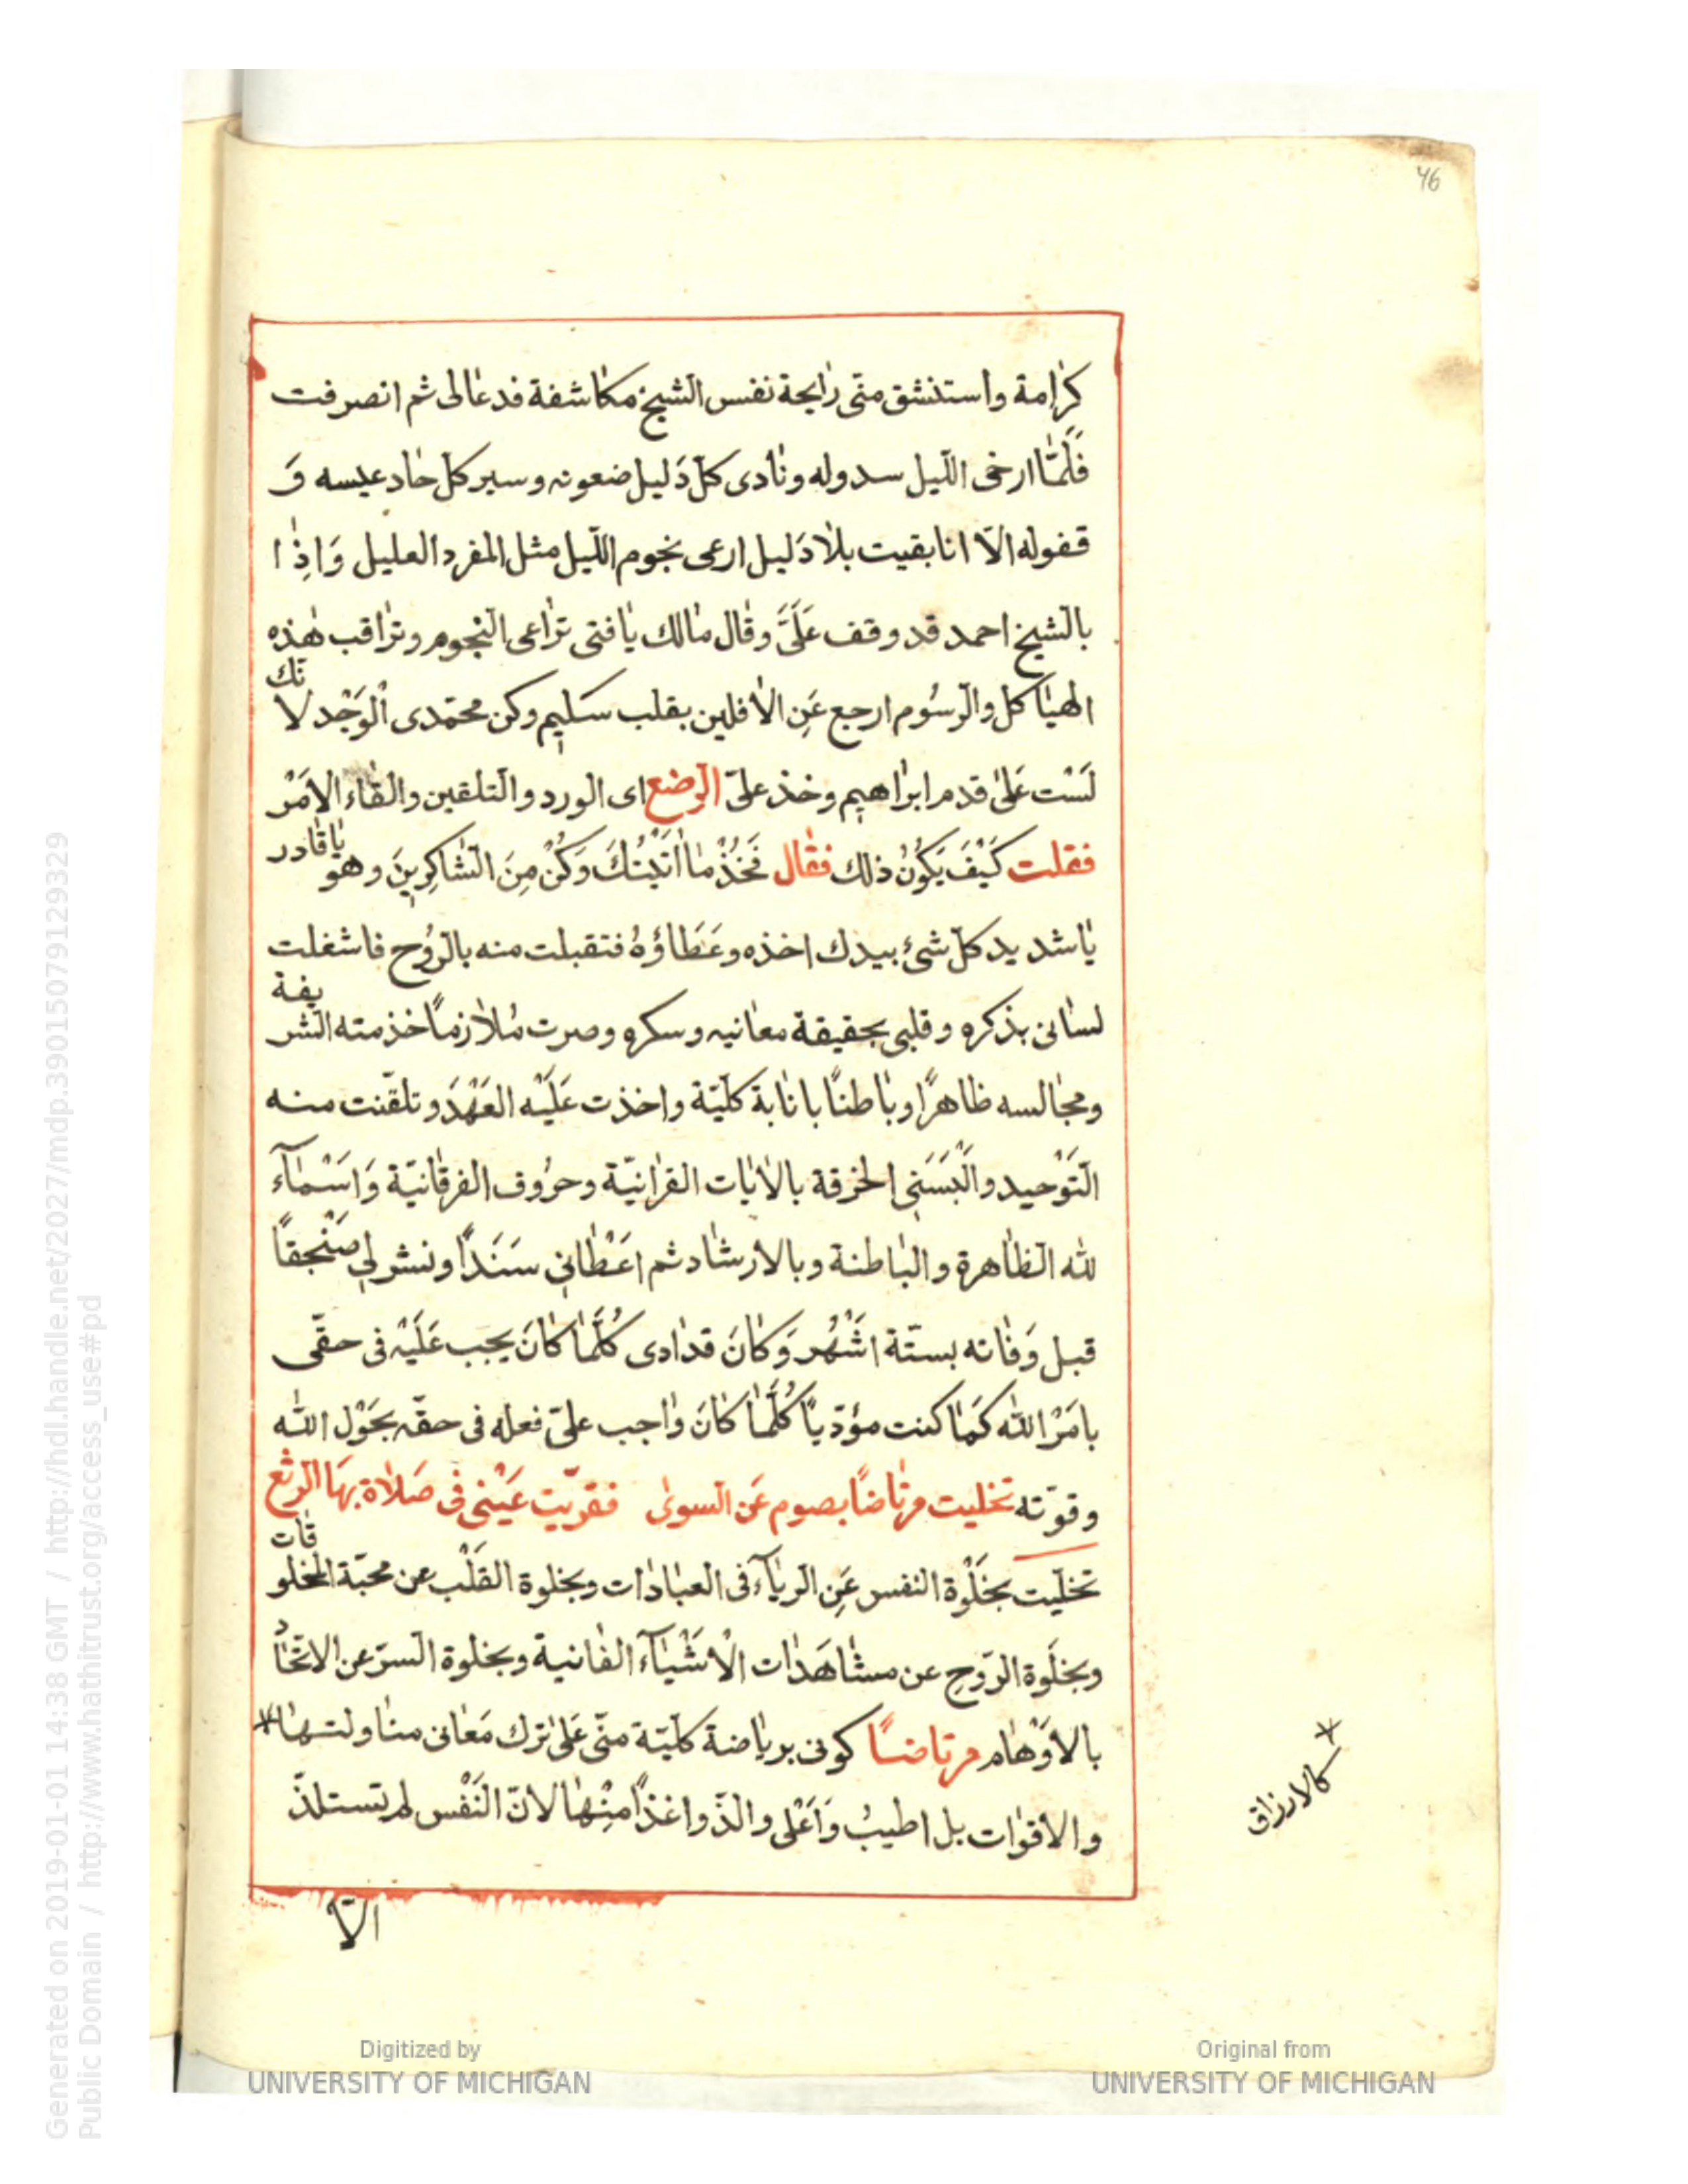 46
كرامة واستنشق منّى رايحة نفس الشيخ مكاشفة فدعالى ثم انصرفت
فَلَمّا ارخى اللّيل سدوله ونادى كلّ دَليل ضعونه وسير كلّ حاد عيسه وَ
قفوله الّا انا بقيت بلا دَليل ارعى نجوم اللّيل مثل المفرد العليل وَاِذا
بالشيخ احمد قد وقف عَلَىَّ وقال مالك يا فتى تراعى النّجوم وتراقب هذه
الهياكل والرّسُوم ارجع عَنِ الافلين بقلب سَليم وكن محمّدى الْوَجْد لا تك
لَسْت عَلى قدم ابراهيم وخذ علىّ الرضع اى الورد والتلقين والقاء الامْر
فقلت كَيْفَ يَكُونُ ذلك فقال فَخُذْ ما اتَيْتُكَ وَكُنْ مِنَ الشاكِرِينَ وهو يا قادر
يا شديد كلّ شئ بيدك اخذه وعَطاؤهُ فتقبلت منه بالرّوُح فاشغلت
لسانى بذكره وقلبى بحقيقة معانيه وسكره وصرت مُلازماً خذمته الشريفة
ومجالسه ظاهرًا وباطنًا بانابة كلّيّة واخذت عَلَيْه العَهْدَ وتلقّنت منه
التّوْحيد والْبَسَنى الخرقة بالايات القرانيّة وحرُوف الفرقانيّة وَاسْمآء
لله الظاهرة والباطنة وبالارشاد ثم اعَطانى سَنَدًا ونشر لى صَنْجقًا
قبل وَفاته بستّة اشْهُر وَكانَ قد ادى كُلَّما كانَ يجب عَلَيْه فى حقّى
بامْر الله كَما كنت مؤدّيًا كُلَّما كانَ واجب علىّ فعله فى حقّه بحَوْل الله
وقوّته تخليت مرتاضًا بصوم عَن السوى فقرّيت عَيْنى فى صَلاة بهَا الرتع
تخلّيت بخَلْوة النفس عَنِ الرياء فى العبادات وبخلوة القَلْب عن محبّة المخلوقات
وبخلَوة الرّوح عن مشاهَدات الْاشْيآء الفانية وبخلوة السرّ عن الاتّحاد
بالاوْهام مرتاضًا كونى برياضة كلّيّة منّى عَلى ترك مَعانى مناولتها
والاقوات بل اطيبُ وَاَعْلى والذّ واغذًا مِنْها لانّ النَفْس لم تستلذّ
كالارزاق
الّا
Digitized by
UNIVERSITY OF MICHIGAN
Original from
UNIVERSITY OF MICHIGAN
Generated on 2019-01-01 14:38 GMT / http://hdl.handle.net/2027/mdp.39015079129329
Public Domain / http://www.hathitrust.org/access_use#pd